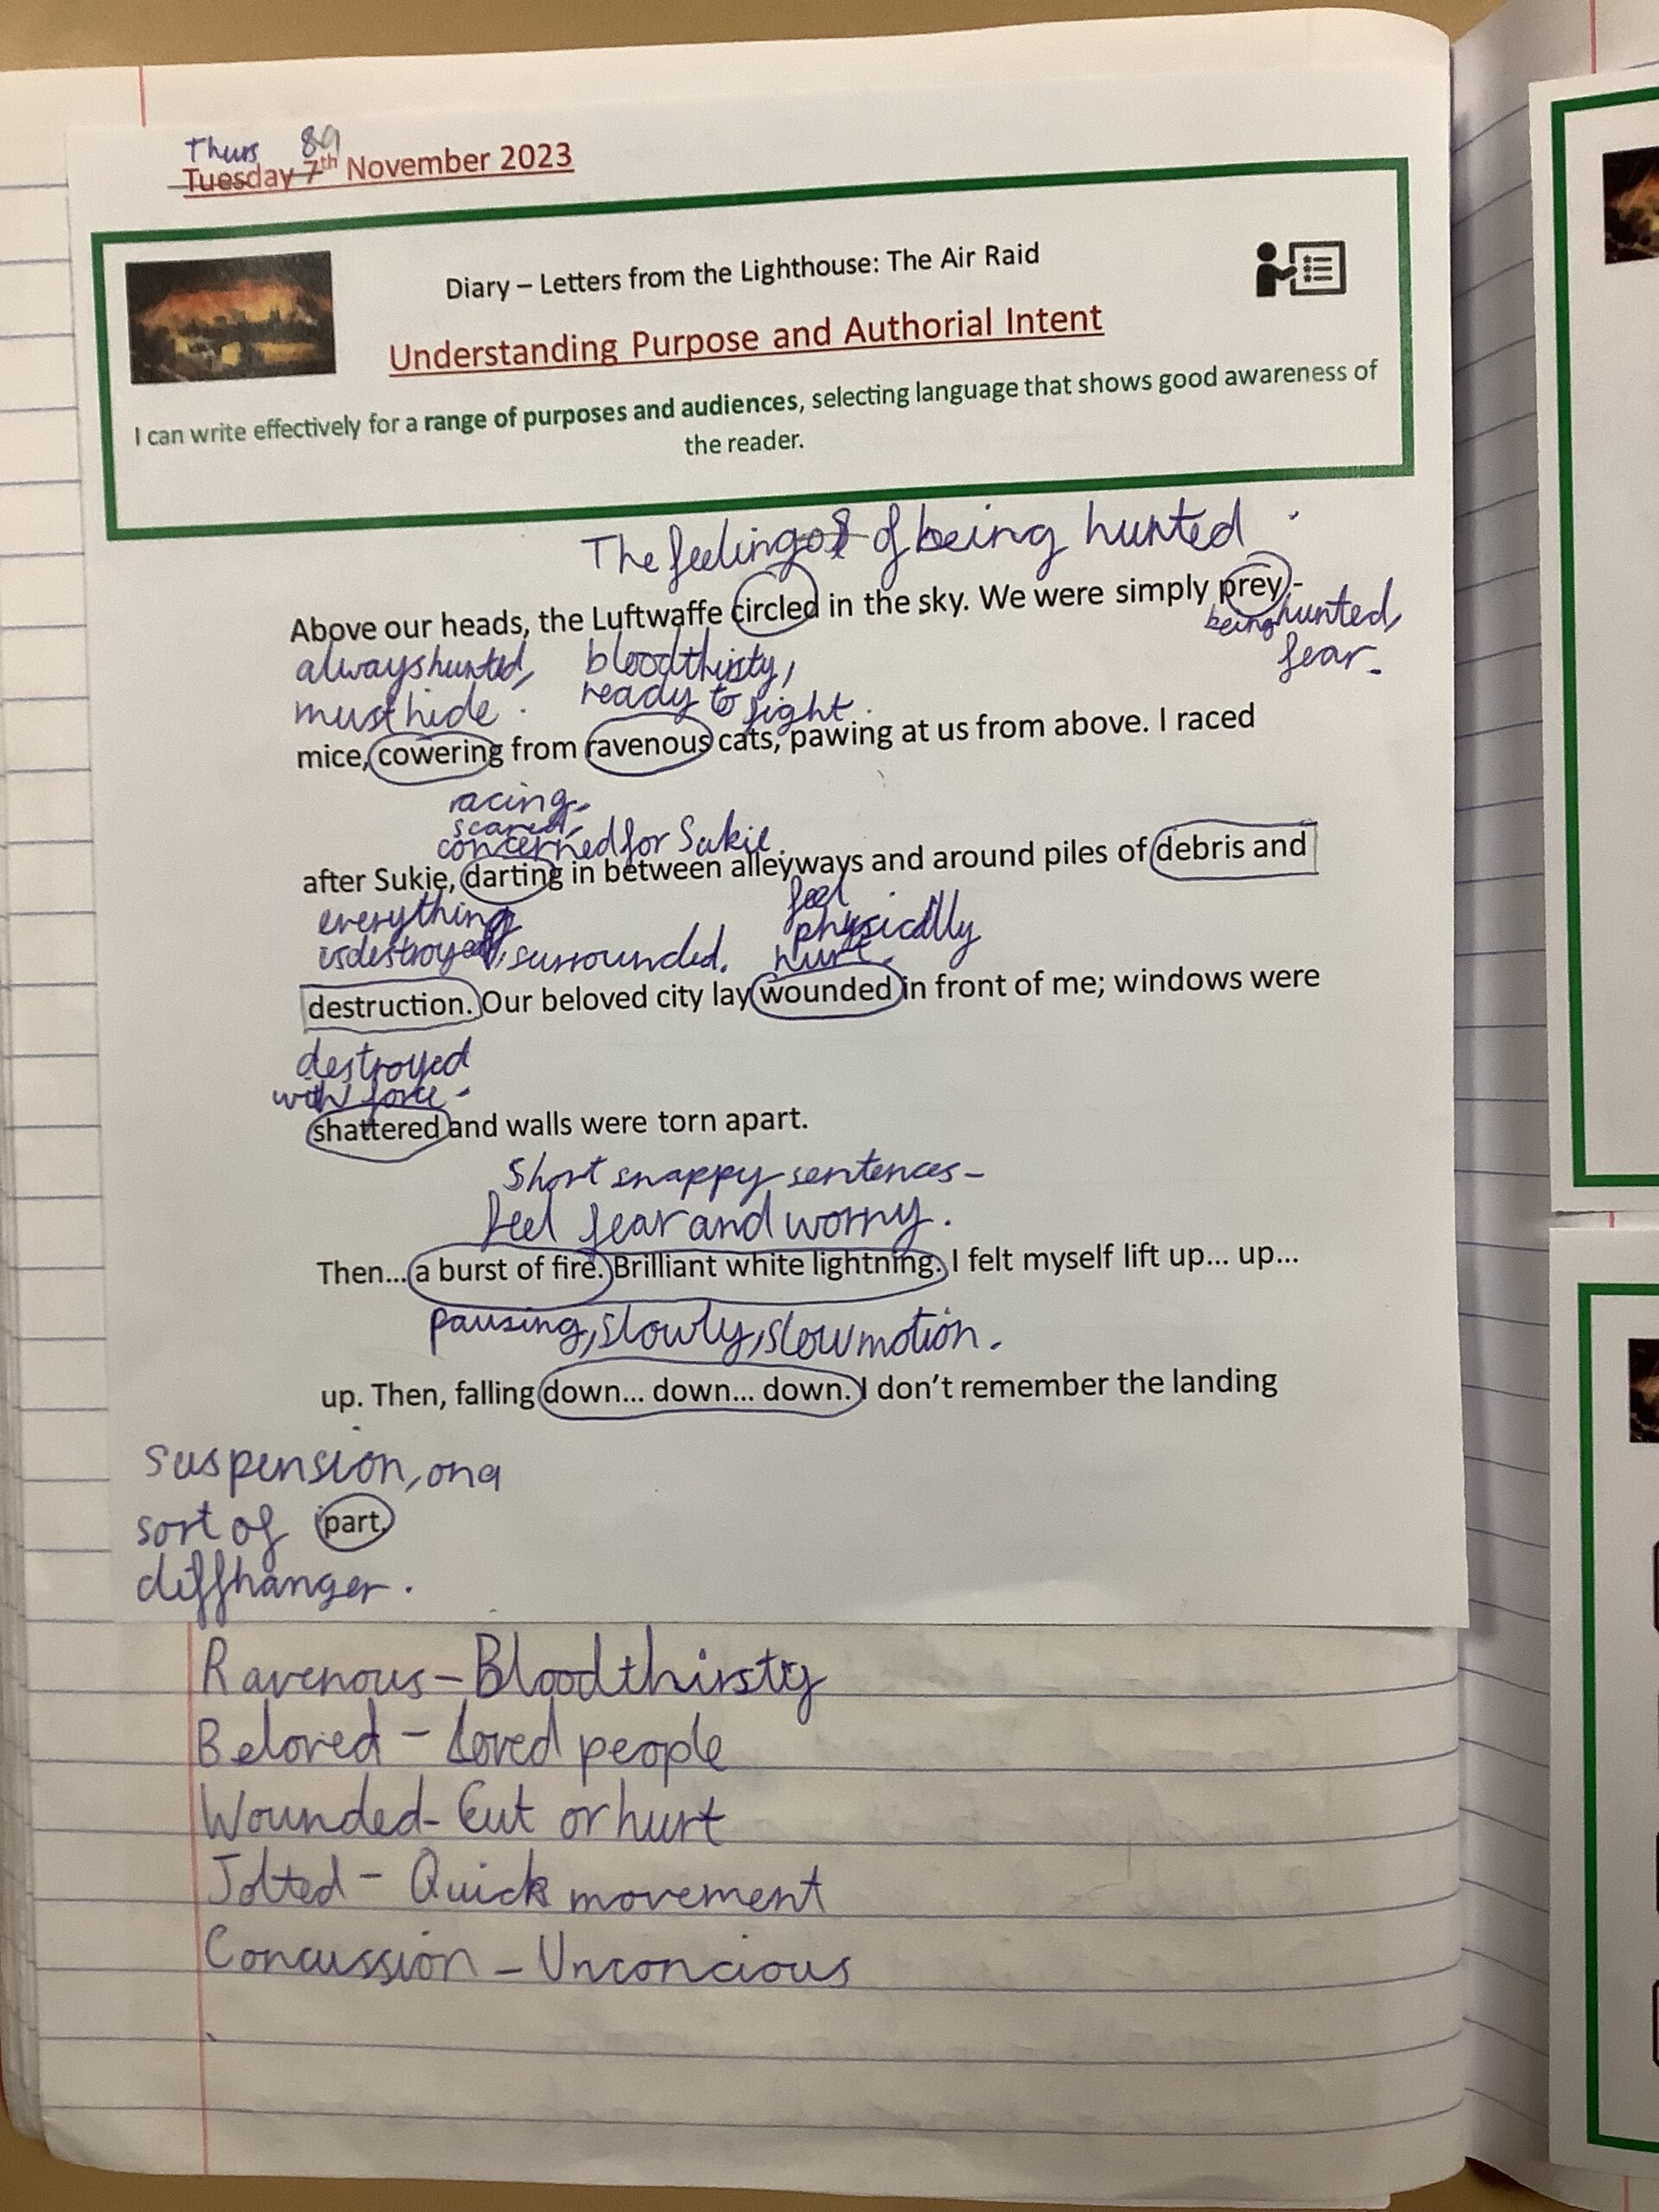 Thurs 89
Tuesday 7th November 2023
Diary – Letters from the Lighthouse: The Air Raid
Understanding Purpose and Authorial Intent
I can write effectively for a range of purposes and audiences, selecting language that shows good awareness of
the reader.
The feeling of being hunted
Above our heads, the Luftwaffe circled in the sky. We were simply prey -
being hunted,
fear.
always hunted, bloodthirsty,
must hide. ready to fight.
mice, cowering from ravenous cats, pawing at us from above. I raced
racing,
scared,
concerned for Sukie.
after Sukie, darting in between alleyways and around piles of debris and
everything feel
is destroyed, surrounded. physically
hurt.
destruction. Our beloved city lay wounded in front of me; windows were
destroyed
with force.
shattered and walls were torn apart.
Short snappy sentences -
feel fear and worry.
Then... a burst of fire. Brilliant white lightning. I felt myself lift up... up...
pausing, slowly, slow motion.
up. Then, falling down... down... down. I don't remember the landing
suspension, on a
sort of part.
cliffhanger.
Ravenous - Bloodthirsty
Beloved - Loved people
Wounded - Cut or hurt
Jolted - Quick movement
Concussion - Unconcious